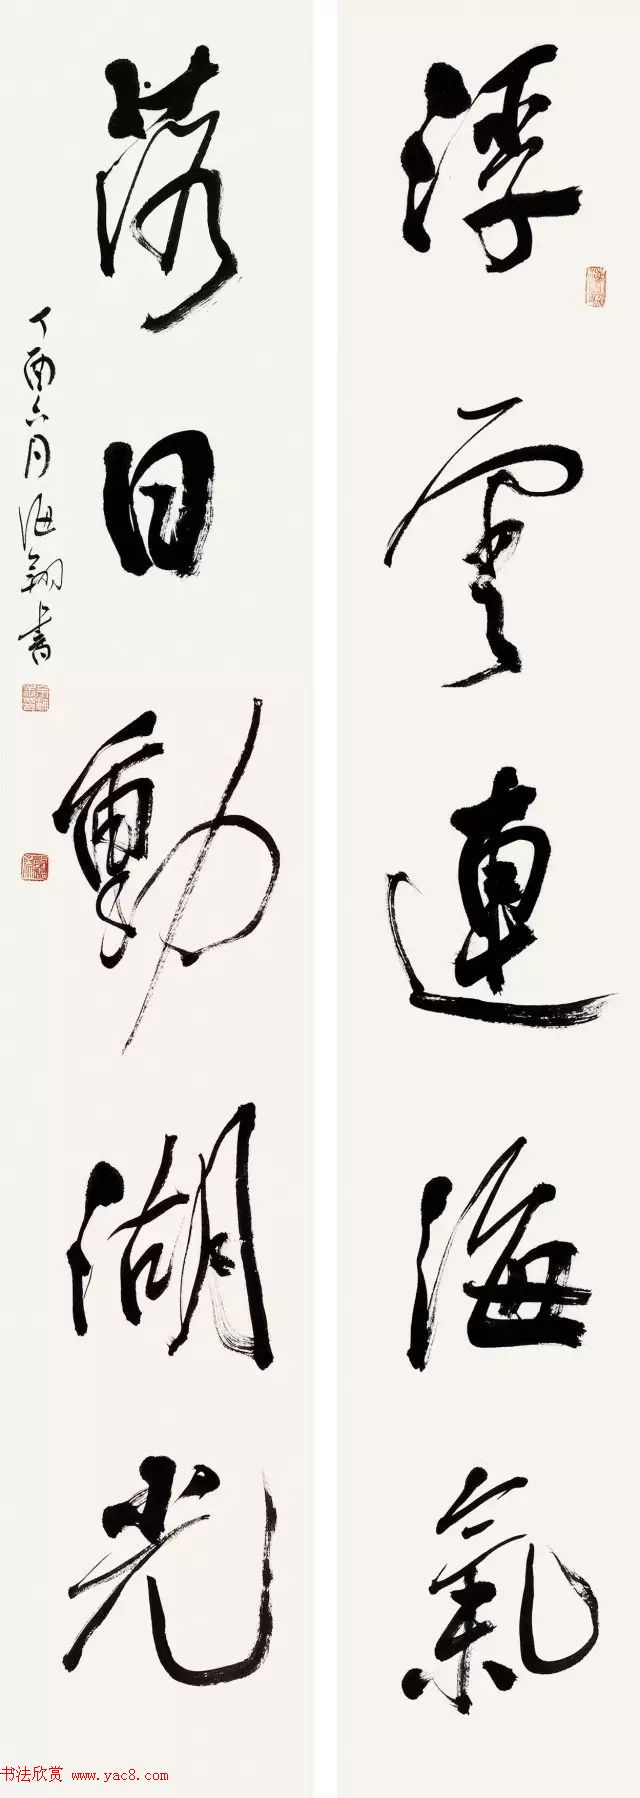 浮雲連海氣
落日動湖光
丁酉六月海翔書
书法欣赏 www.yac8.com